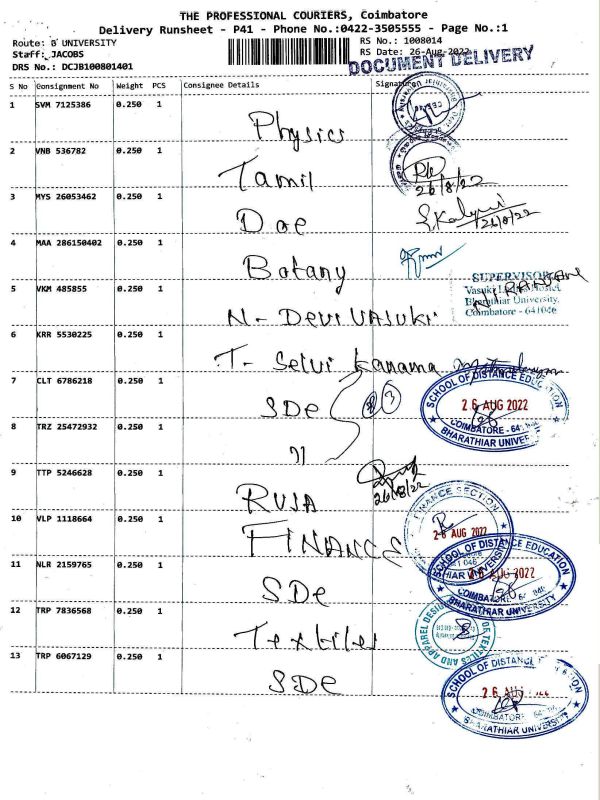 THE PROFESSIONAL COURIERS, Coimbatore
Delivery Runsheet - P41 - Phone No.:0422-3505555 - Page No.:1
Route: B UNIVERSITY
RS No.: 1008014
Staff: JACOBS
RS Date: 26-Aug-2022
DRS No.: DCJB100801401
DOCUMENT DELIVERY
S No Consignment No Weight PCS Consignee Details Signature
1 SVM 7125386 0.250 1
Physics
2 VNB 536782 0.250 1
Tamil
26/8/22
3 MYS 26053462 0.250 1
Doe
S. Kalyani
26/8/22
4 MAA 286150402 0.250 1
Botany
SUPERVISOR
Vasuki Ladies Hostel
Bharathiar University,
Coimbatore - 641046
5 VKM 485855 0.250 1
N- DEVI VASUKI
6 KRR 5530225 0.250 1
T- Selvi Kanama
7 CLT 6786218 0.250 1
SDE
3
SCHOOL OF DISTANCE EDUCATION
26 AUG 2022
COIMBATORE - 641
BHARATHIAR UNIVER
8 TRZ 25472932 0.250 1
11
9 TTP 5246628 0.250 1
RUSA
26/8/22
10 VLP 1118664 0.250 1
FINANCE
FINANCE SECTION
26 AUG 2022
11 NLR 2159765 0.250 1
SDE
SCHOOL OF DISTANCE EDUCATION
AUG 2022
COIMBATORE
BHARATHIAR UNIVERSITY
12 TRP 7836568 0.250 1
Textiles
OF TEXTILES AND APPAREL DESIGN
13 TRP 6067129 0.250 1
SDE
SCHOOL OF DISTANCE
26 AUG
COIMBATORE
BHARATHIAR UNIVERSITY